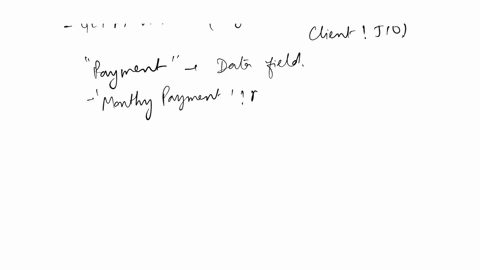 Client ! J10)
"Payment" → Data field.
- 'Monthy Payment' ! r